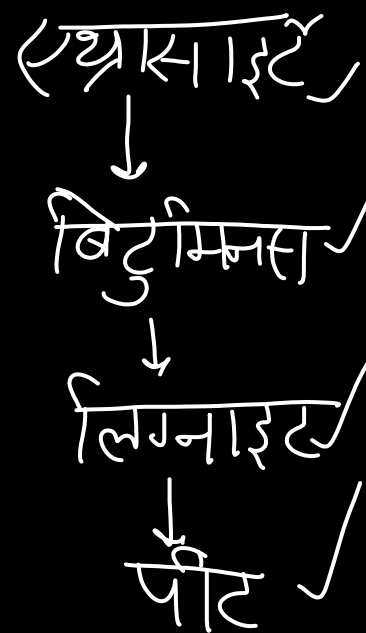 एथ्रासाइर्ट
बिटुमिनस
लिग्नाइट
पीट